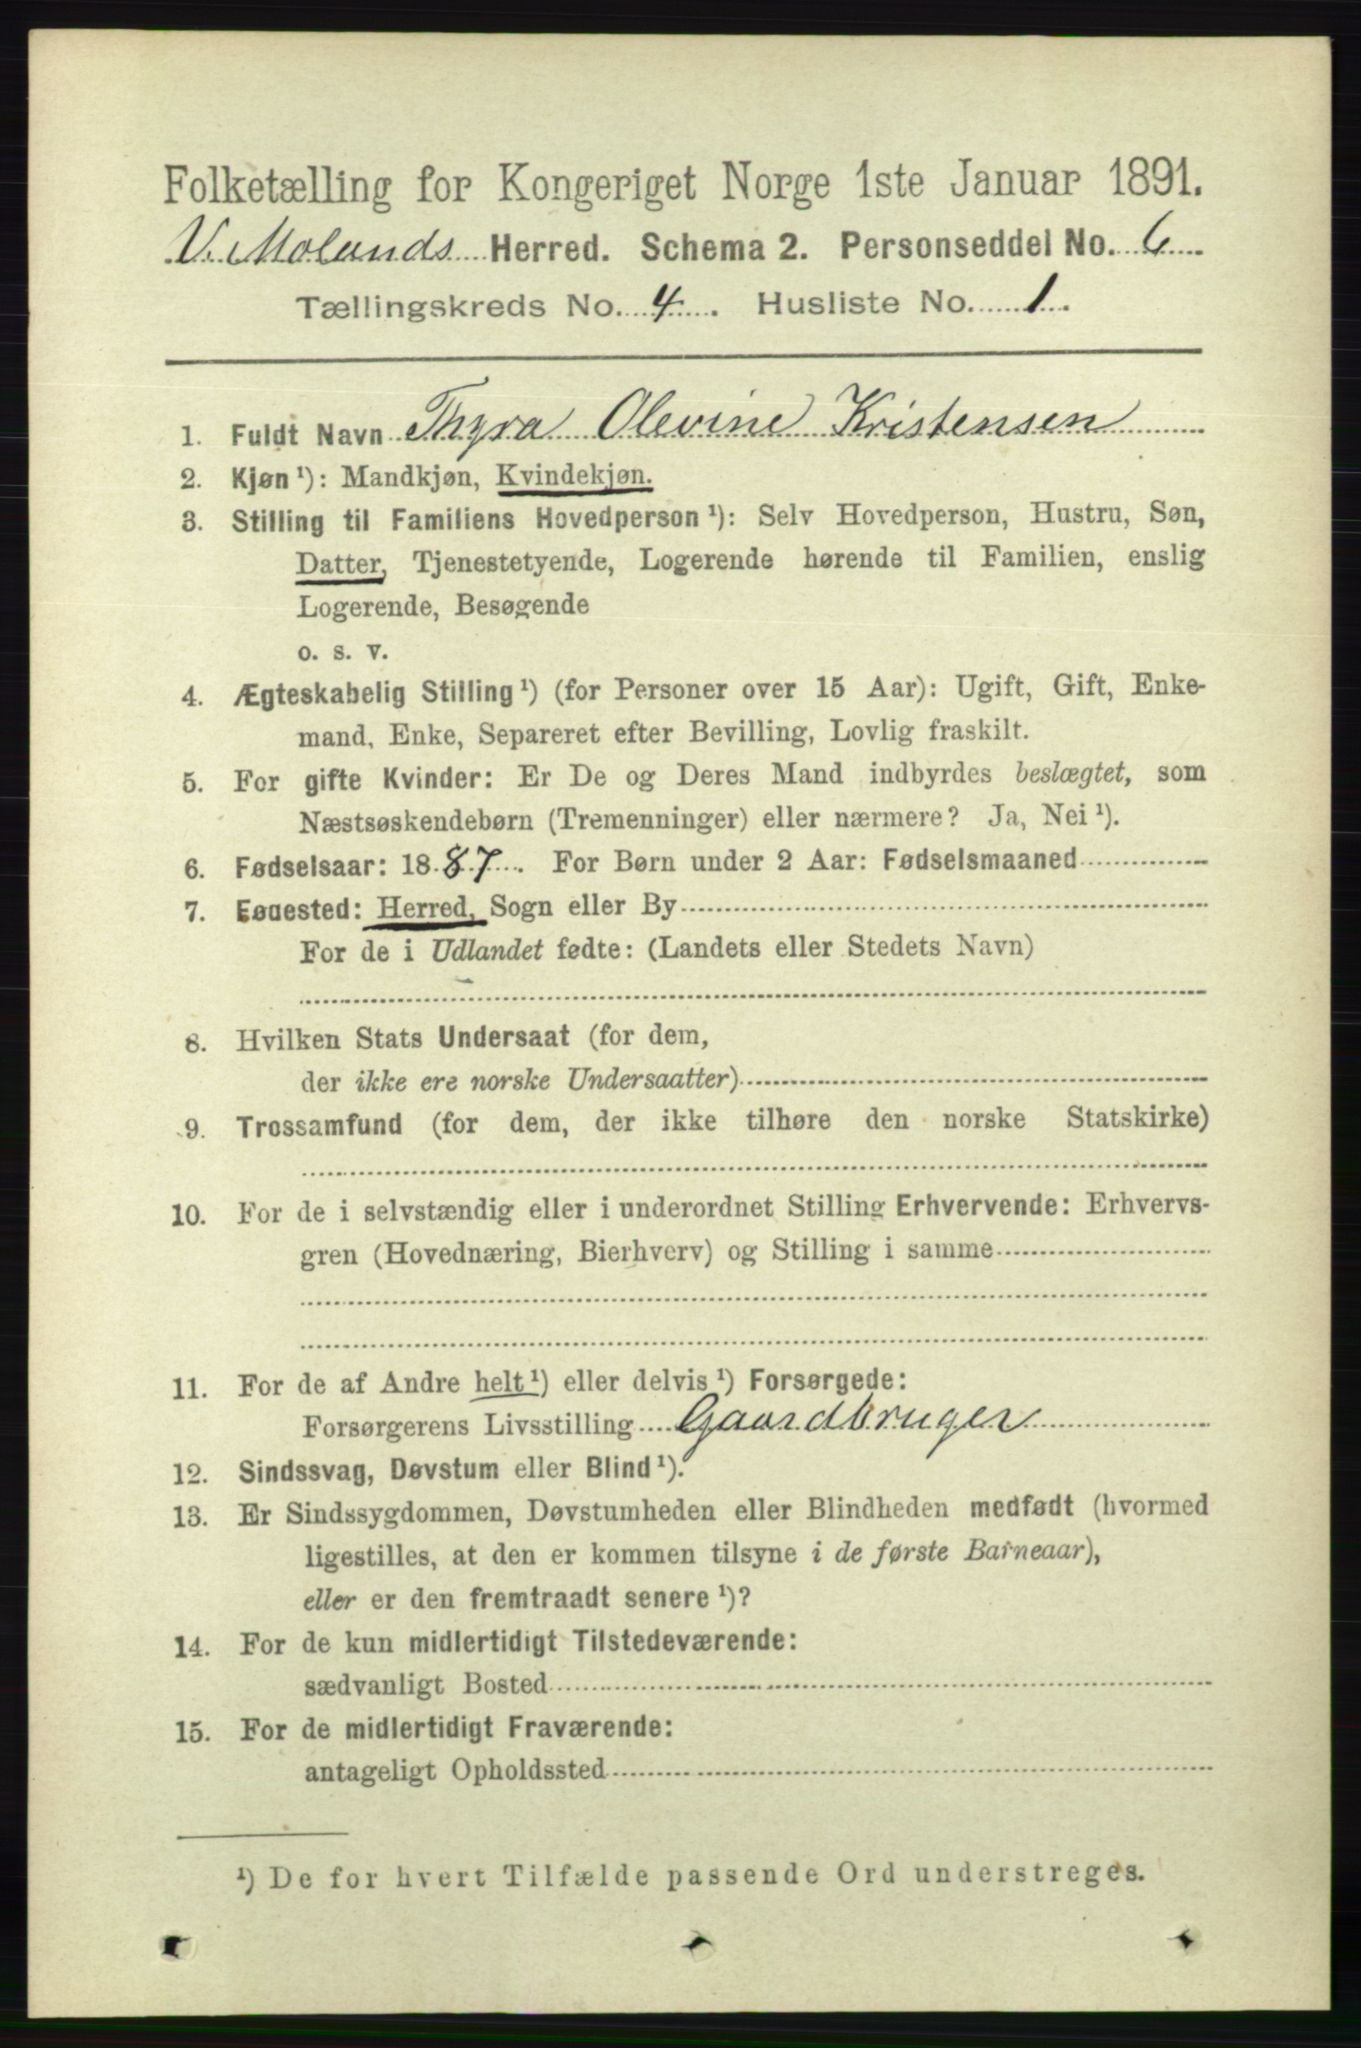 Folketælling for Kongeriget Norge 1ste Januar 1891.
V. Molands Herred. Schema 2. Personseddel No. 6
Tællingskreds No. 4. Husliste No. 1.
1. Fuldt Navn Thyra Olevine Kristensen
2. Kjøn ¹): Mandkjøn, Kvindekjøn.
3. Stilling til Familiens Hovedperson ¹): Selv Hovedperson, Hustru, Søn,
Datter, Tjenestetyende, Logerende hørende til Familien, enslig
Logerende, Besøgende
o. s. v.
4. Ægteskabelig Stilling ¹) (for Personer over 15 Aar): Ugift, Gift, Enke-
mand, Enke, Separeret efter Bevilling, Lovlig fraskilt.
5. For gifte Kvinder: Er De og Deres Mand indbyrdes beslægtet, som
Næstsøskendebørn (Tremenninger) eller nærmere? Ja, Nei ¹).
6. Fødselsaar: 1887. For Børn under 2 Aar: Fødselsmaaned
7. Fødested: Herred, Sogn eller By
For de i Udlandet fødte: (Landets eller Stedets Navn)
8. Hvilken Stats Undersaat (for dem,
der ikke ere norske Undersaatter)
9. Trossamfund (for dem, der ikke tilhøre den norske Statskirke)
10. For de i selvstændig eller i underordnet Stilling Erhvervende: Erhvervs-
gren (Hovednæring, Bierhverv) og Stilling i samme
11. For de af Andre helt ¹) eller delvis ¹) Forsørgede:
Forsørgerens Livsstilling Gaardbruger
12. Sindssvag, Døvstum eller Blind ¹).
13. Er Sindssygdommen, Døvstumheden eller Blindheden medfødt (hvormed
ligestilles, at den er kommen tilsyne i de første Barneaar),
eller er den fremtraadt senere ¹)?
14. For de kun midlertidigt Tilstedeværende:
sædvanligt Bosted
15. For de midlertidigt Fraværende:
antageligt Opholdssted
¹) De for hvert Tilfælde passende Ord understreges.